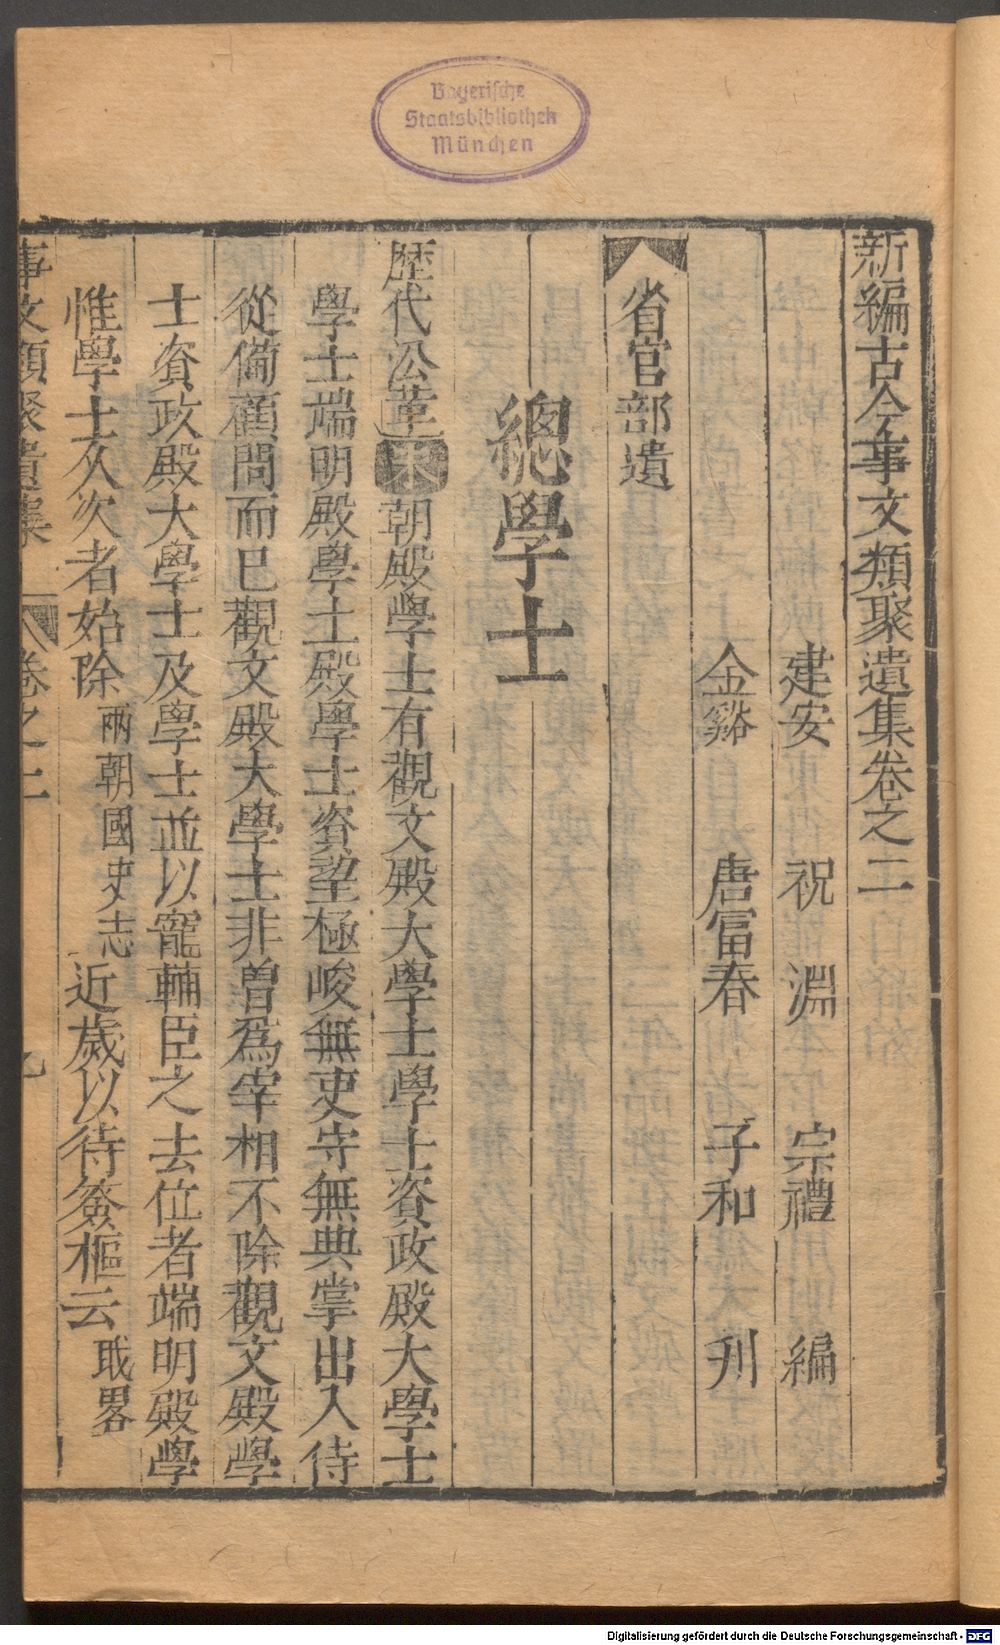 Bayerische
Staatsbibliothek
München
新編古今事文類聚遺集卷之二
建安 祝 淵 宗禮 編
金谿 唐富春 子和 刋
省官部遺
總學士
歷代沿革宋朝殿學士有觀文殿大學士學士資政殿大學士
學士端明殿學士殿學士資望極峻無吏守無典掌出入侍
從備顧問而已觀文殿大學士非曽爲宰相不除觀文殿學
士資政殿大學士及學士並以寵輔臣之去位者端明殿學
惟學士久次者始除兩朝國史志近歲以待簽樞云職畧
事文類聚遺集 卷之二
Digitalisierung gefördert durch die Deutsche Forschungsgemeinschaft - DFG